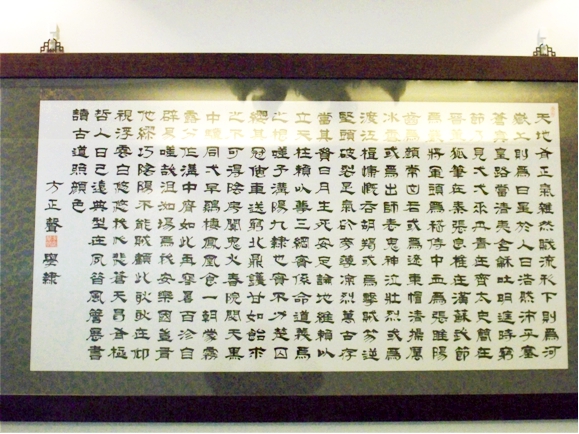 天地有正氣雜然賦流形下則為河
嶽上則為日星於人曰浩然沛乎塞
蒼冥皇路當清夷含和吐明廷時窮
節乃見弌弌垂丹青在齊太史簡在
晉董狐筆在秦張良椎在漢蘇武節
為嚴將軍頭為嵇侍中血為張睢陽
齒為顏常山舌或為遼東帽清操厲
冰雪或為出師表鬼神泣壯烈或為
渡江楫慷慨吞胡羯或為擊賊笏逆
豎頭破裂是氣所旁薄凜烈萬古存
當其貫日月生死安足論地維賴以
立天柱賴以尊三綱實係命道義為
之根嗟予遘陽九隸也實不力楚囚
纓其冠傳車送窮北鼎鑊甘如飴求
之不可得陰房闃鬼火春院閟天黑
牛驥同弌皁雞棲鳳凰食一朝蒙霧
露分作溝中瘠如此再寒暑百沴自
辟易嗟哉沮洳場為我安樂國豈有
他繆巧陰陽不能賊顧此耿耿在仰
視浮雲白悠悠我心悲蒼天曷有極
哲人日已遠典型在夙昔風簷展書
讀古道照顏色
方正聲 學隸